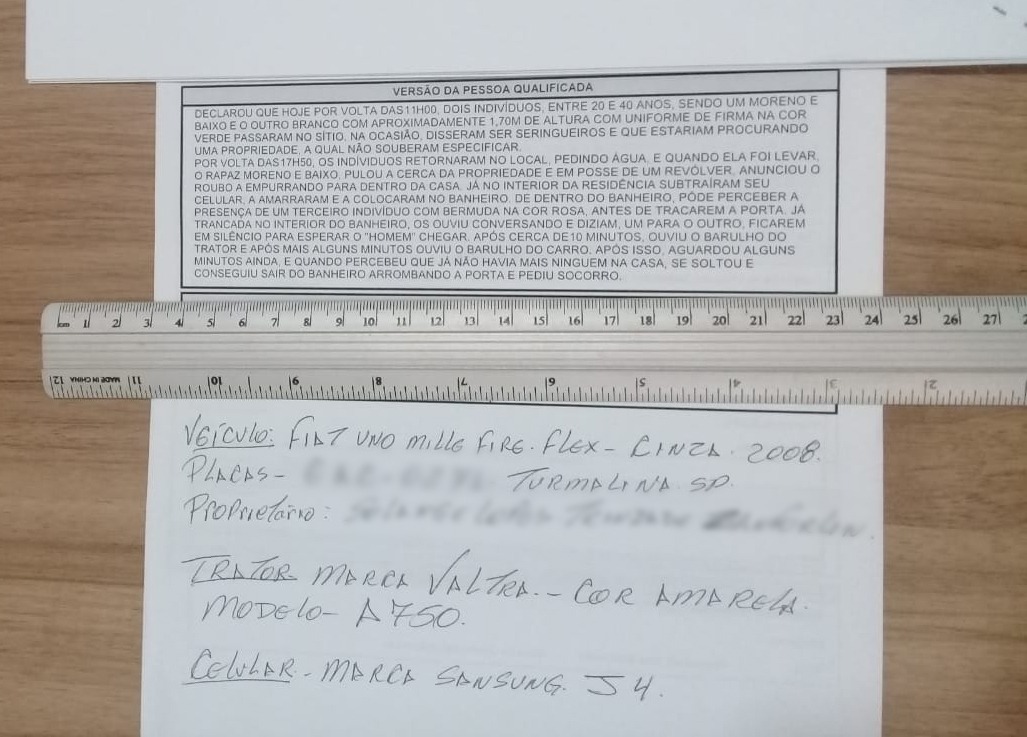 VERSÃO DA PESSOA QUALIFICADA
DECLAROU QUE HOJE POR VOLTA DAS11H00, DOIS INDIVÍDUOS, ENTRE 20 E 40 ANOS, SENDO UM MORENO E
BAIXO E O OUTRO BRANCO COM APROXIMADAMENTE 1,70M DE ALTURA COM UNIFORME DE FIRMA NA COR
VERDE PASSARAM NO SÍTIO, NA OCASIÃO, DISSERAM SER SERINGUEIROS E QUE ESTARIAM PROCURANDO
UMA PROPRIEDADE, A QUAL NÃO SOUBERAM ESPECIFICAR.
POR VOLTA DAS17H50, OS INDÍVIDUOS RETORNARAM NO LOCAL, PEDINDO ÁGUA, E QUANDO ELA FOI LEVAR,
O RAPAZ MORENO E BAIXO, PULOU A CERCA DA PROPRIEDADE E EM POSSE DE UM REVÓLVER, ANUNCIOU O
ROUBO A EMPURRANDO PARA DENTRO DA CASA. JÁ NO INTERIOR DA RESIDÊNCIA SUBTRAÍRAM SEU
CELULAR, A AMARRARAM E A COLOCARAM NO BANHEIRO. DE DENTRO DO BANHEIRO, PÔDE PERCEBER A
PRESENÇA DE UM TERCEIRO INDIVÍDUO COM BERMUDA NA COR ROSA, ANTES DE TRACAREM A PORTA. JÁ
TRANCADA NO INTERIOR DO BANHEIRO, OS OUVIU CONVERSANDO E DIZIAM, UM PARA O OUTRO, FICAREM
EM SILÊNCIO PARA ESPERAR O "HOMEM" CHEGAR. APÓS CERCA DE10 MINUTOS, OUVIU O BARULHO DO
TRATOR E APÓS MAIS ALGUNS MINUTOS OUVIU O BARULHO DO CARRO. APÓS ISSO, AGUARDOU ALGUNS
MINUTOS AINDA, E QUANDO PERCEBEU QUE JÁ NÃO HAVIA MAIS NINGUEM NA CASA, SE SOLTOU E
CONSEGUIU SAIR DO BANHEIRO ARROMBANDO A PORTA E PEDIU SOCORRO.
cm 1 2 3 4 5 6 7 8 9 10 11 12 13 14 15 16 17 18 19 20 21 22 23 24 25 26 27
12 MADE IN CHINA 11 10 9 8 7 6 5 4 3 2
VEÍCULO: FIAT UNO MILLE FIRE. FLEX - CINZA. 2008.
PLACAS - TURMALINA. SP.
PROPrietário:
TRATOR MARCA VALTRA. - COR AMARELA.
MODELO - A750.
CELULAR - MARCA SANSUNG. J4.